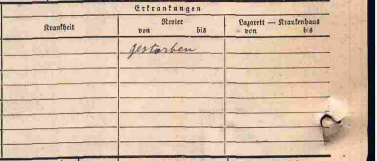 Erkrankungen
Krankheit
Revier
von bis
Lazarett — Krankenhaus
von bis
gestorben